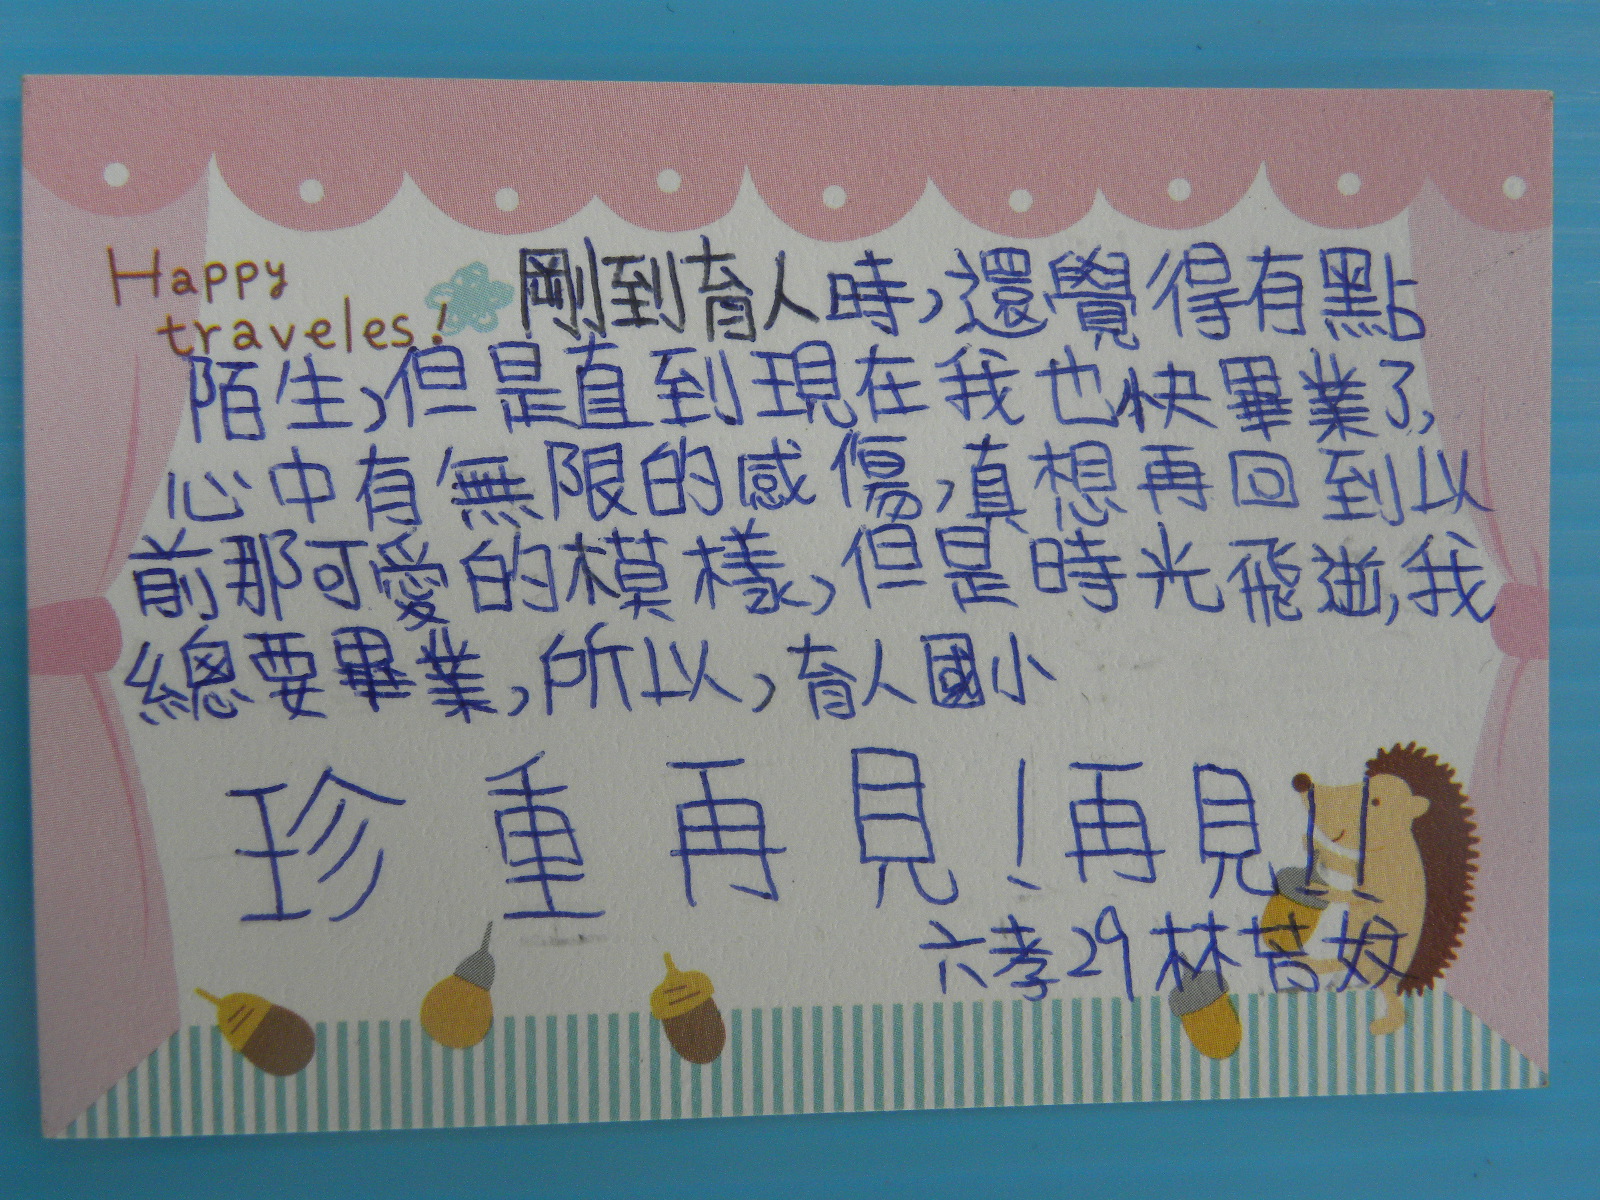 Happy
traveles!
剛到育人時,還覺得有點
陌生,但是直到現在我也快畢業了,
心中有無限的感傷,真想再回到以
前那可愛的模樣,但是時光飛逝,我
總要畢業,所以,育人國小
珍重再見!再見!!
六孝29林若